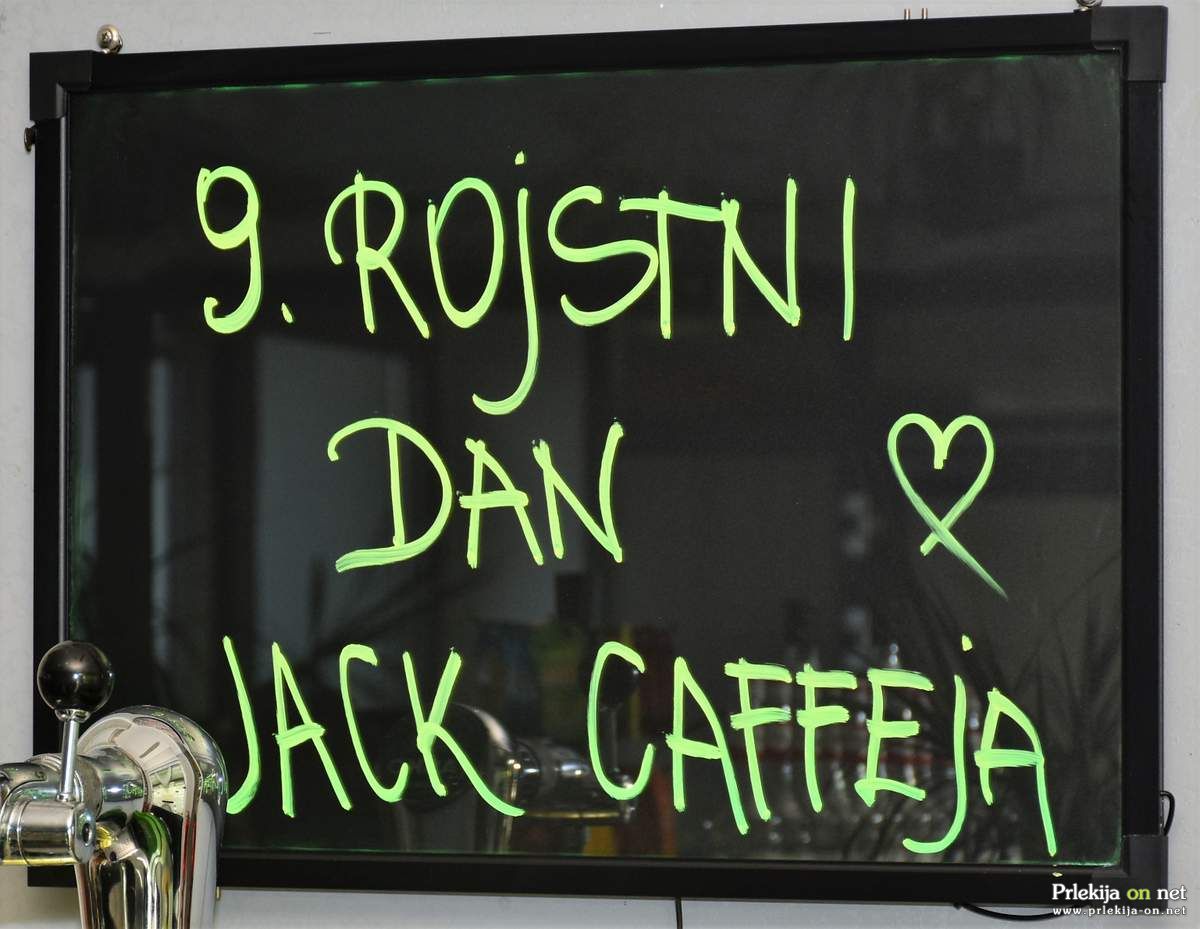 9. ROJSTNI
DAN
JACK CAFFEJA
Prlekija on net
www.prlekija-on.net